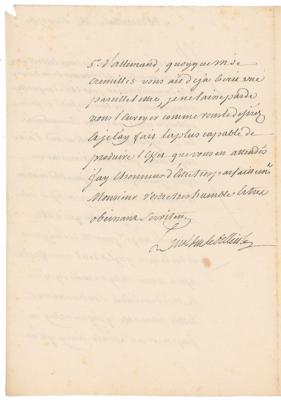 Sr d'allemand, quoyque Mr de
Cremilles vous ait deja ecrit une
pareille lettre, je ne laisse pas de
vous l'envoyer comme vous le desirez
et je l'ay fait le plus capable de
produire l'effet que vous en attendés
J'ay l'honneur d'etre tres parfaitemt
Monsieur votre tres humble et tres
obeissant Serviteur